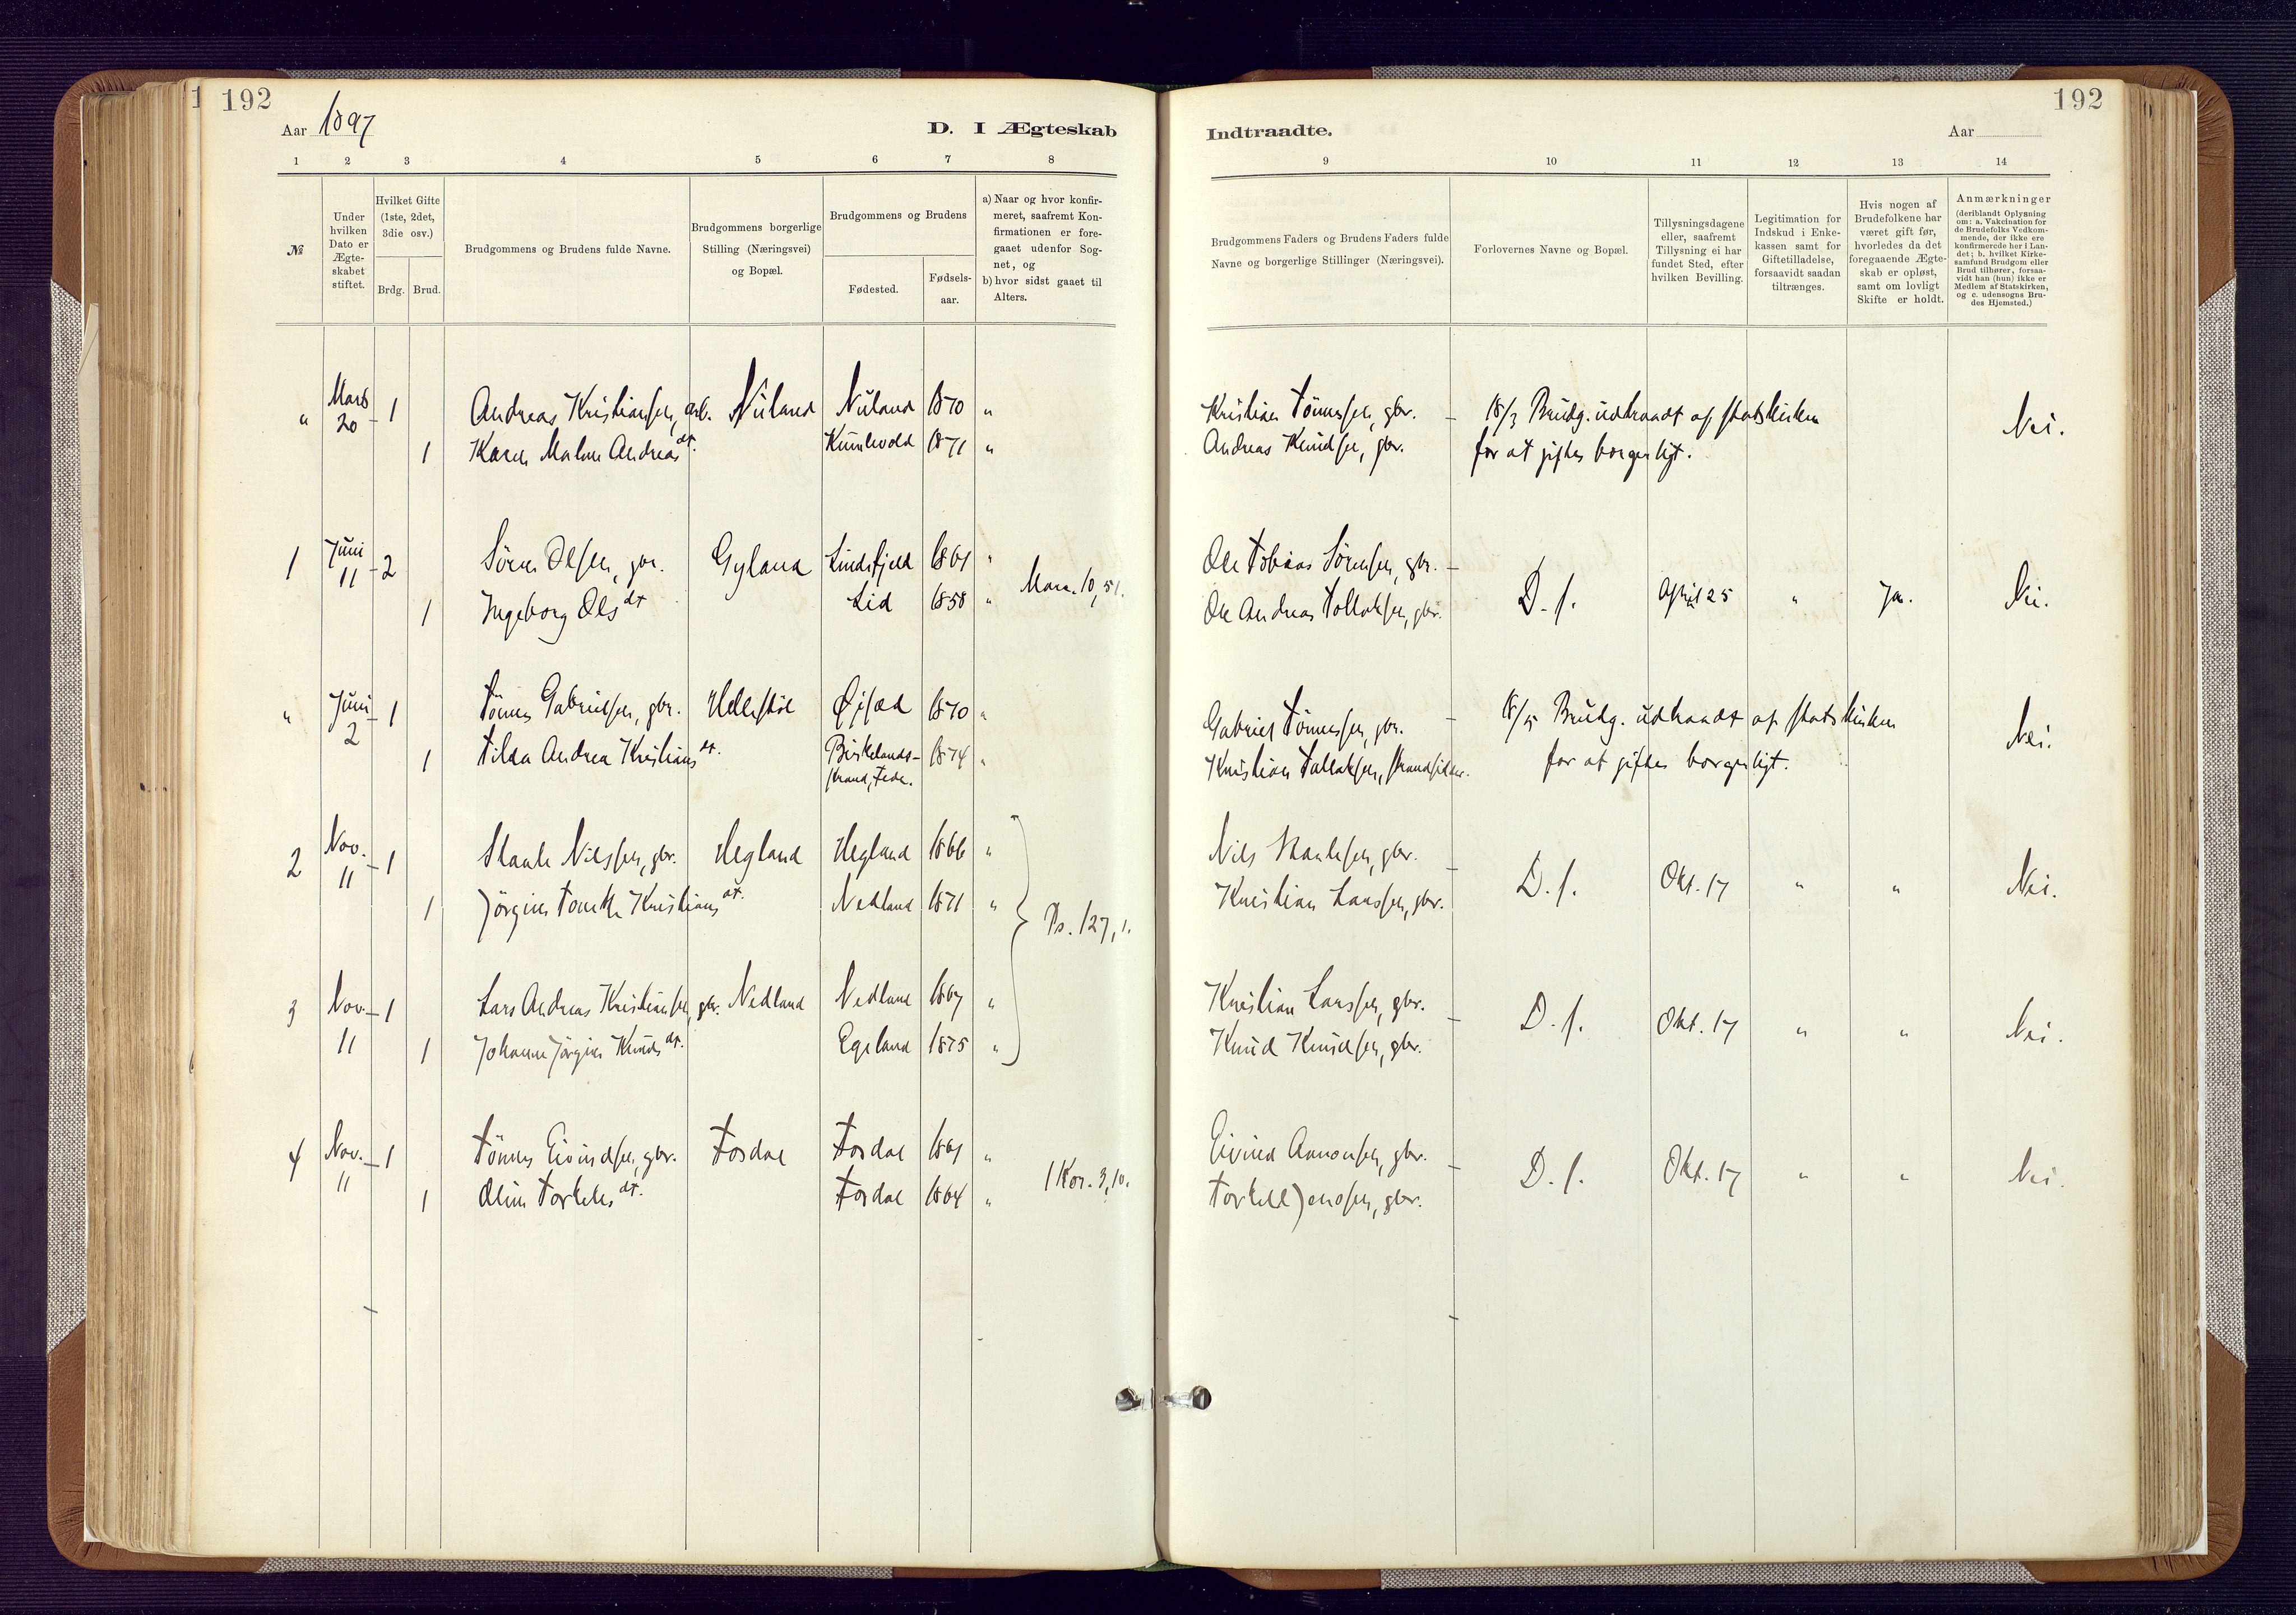 192
Aar 1897
D. I Ægteskab
1 2 3 4 5 6 7 8
№
Under hvilken Dato er Ægteskabet stiftet.
Hvilket Gifte (1ste, 2det, 3die osv.)
Brdg. Brud.
Brudgommens og Brudens fulde Navne.
Brudgommens borgerlige Stilling (Næringsvei) og Bopæl.
Brudgommens og Brudens
Fødested.
Fødsels-aar.
a) Naar og hvor konfir-
meret, saafremt Kon-
firmationen er fore-
gaaet udenfor Sog-
net, og
b) hvor sidst gaaet til
Alters.
" Mars 20 1 Andreas Kristiansen, arb. Nuland Nuland 1870 "
1 Karen Malene Andreasdt. Kumlevold 1871 "
1 Juni 11 2 Sören Olsen, gbr. Gyland Lindefjeld 1861 "
1 Ingeborg Olsdt Lid 1858 " Marc. 10, 51.
" Juni 2 1 Tönnes Gabrielsen, gbr. Hellesköl Öysæd 1870 "
1 Tilda Andrea Kristiansdt. Birkelands-
strand, Fede. 1874 "
2 Nov. 11 1 Staale Nilssen, gbr. Hegland Hegland 1866 "
1 Jörgine Tomette Kristiansdt. Nedland 1871 " Ps. 127, 1.
3 Nov. 11 1 Lars Andreas Kristiansen, gbr. Nedland Nedland 1867 "
1 Johanne Jörgine Knudsdt. Egeland 1875 "
4 Nov. 11 1 Tönnes Eivindsen, gbr. Fosdal Fosdal 1861 "
1 Oline Torkelsdt. Fosdal 1864 " 1 Kor. 3, 10.
192
Indtraadte.
Aar
9 10 11 12 13 14
Brudgommens Faders og Brudens Faders fulde
Navne og borgerlige Stillinger (Næringsvei).
Forlovernes Navne og Bopæl.
Tillysningsdagene
eller, saafremt
Tillysning ei har
fundet Sted, efter
hvilken Bevilling.
Legitimation for
Indskud i Enke-
kassen samt for
Giftetilladelse,
forsaavidt saadan
tiltrænges.
Hvis nogen af
Brudefolkene har
været gift før,
hvorledes da det
foregaaende Ægte-
skab er opløst,
samt om lovligt
Skifte er holdt.
Anmærkninger
(deriblandt Oplysning
om: a. Vakcination for
de Brudefolks Vedkom-
mende, der ikke ere
konfirmerede her i Lan-
det; b. hvilket Kirke-
samfund Brudgom eller
Brud tilhører, forsaa-
vidt han (hun) ikke er
Medlem af Statskirken,
og c. udensogns Bru-
des Hjemsted.)
Kristian Tönnessen, gbr. 18/3 Brudg. udtraadt af statskirken
Andreas Knudsen, gbr. for at giftes borgerligt. Nei.
Ole Tobias Sörensen, gbr.
Ole Andreas Tollaksen, gbr. D. s. April 25 " Ja. Nei.
Gabriel Tönnessen, gbr. 18/5 Brudg. udtraadt af statskirken
Kristian Tallaksen, strandsidder. for at giftes borgerligt. Nei.
Nils Staalesen, gbr.
Kristian Larssen, gbr. D. s. Okt. 17 " " Nei.
Kristian Larssen, gbr.
Knud Knudsen, gbr. D. s. Okt. 17 " " Nei.
Eivind Aanonsen, gbr.
Torkell Jensen, gbr. D. s. Okt. 17 " " Nei.